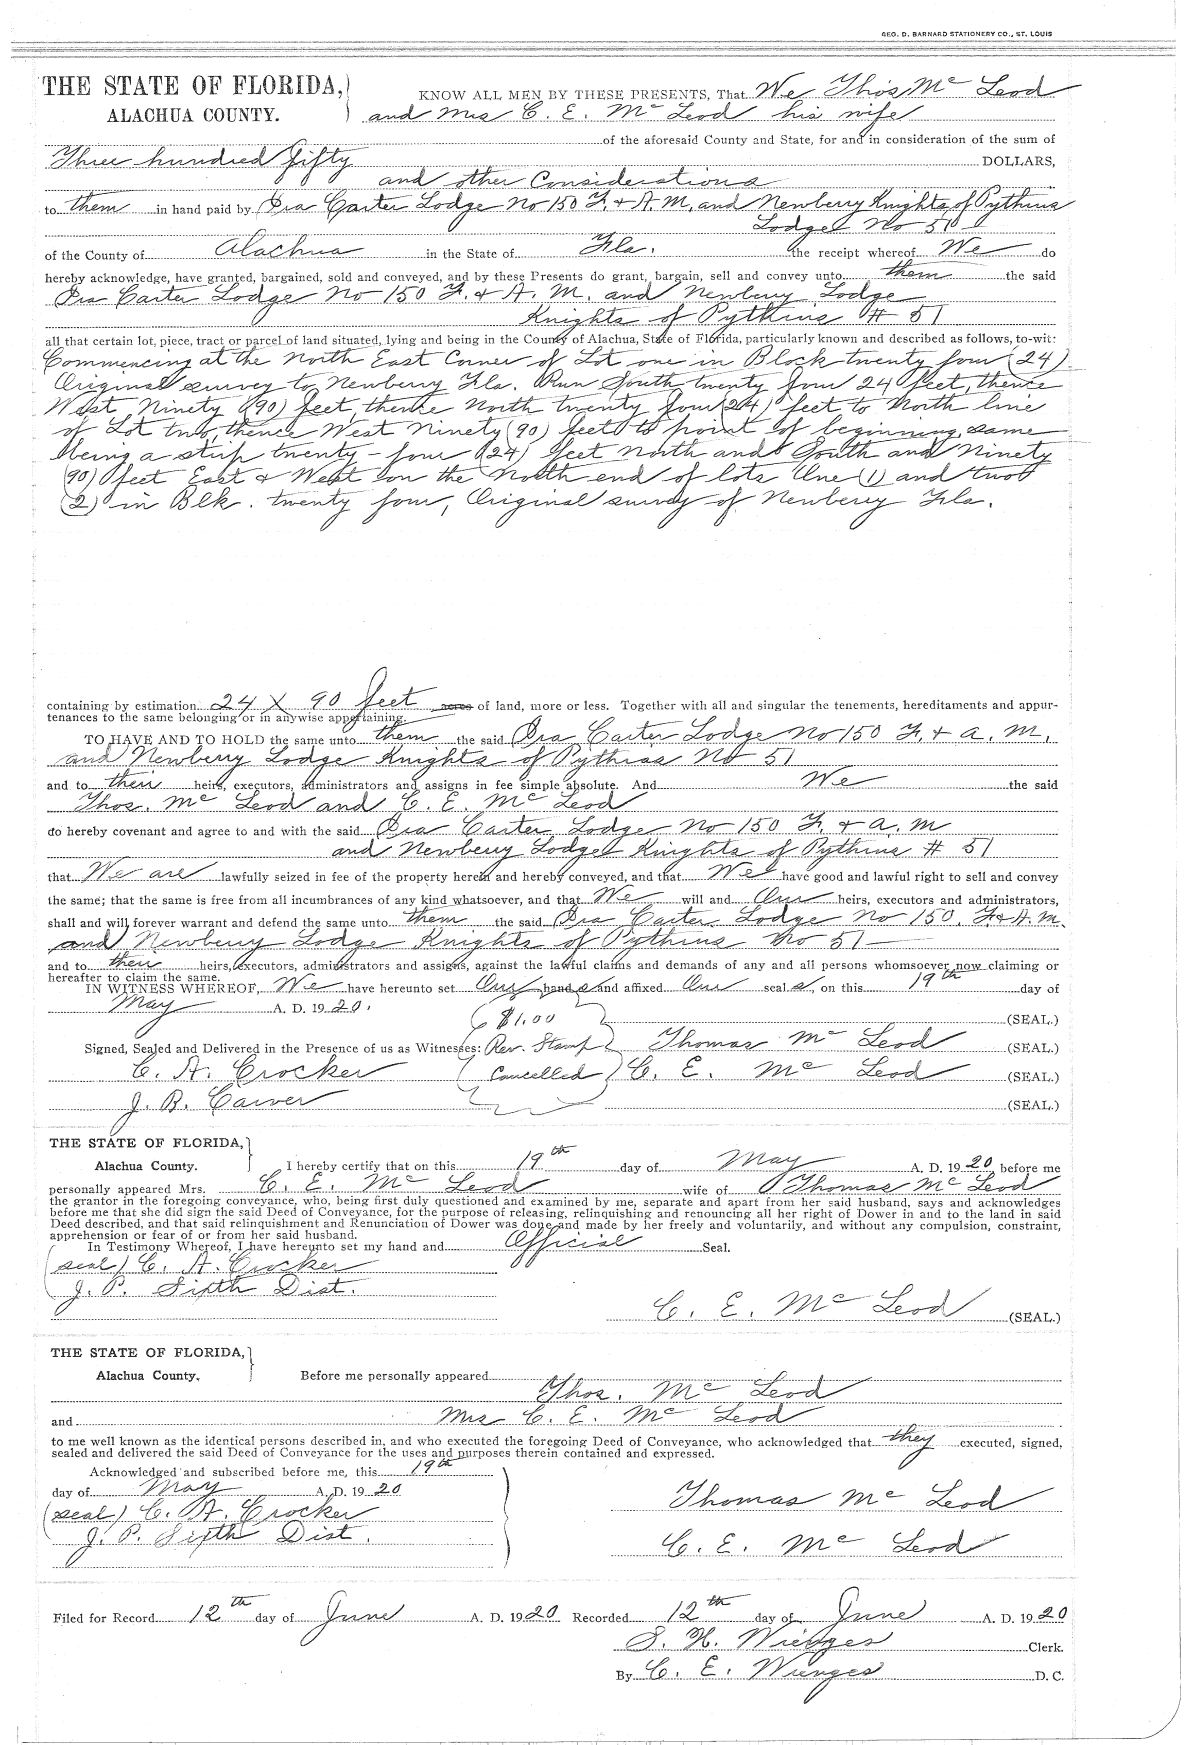 GEO. D. BARNARD STATIONERY CO., ST. LOUIS
THE STATE OF FLORIDA,
ALACHUA COUNTY.
KNOW ALL MEN BY THESE PRESENTS, That We Thos Mc Leod
and Mrs C. E. Mc Leod his wife
of the aforesaid County and State, for and in consideration of the sum of
Three hundred fifty DOLLARS,
and other Considerations
to them in hand paid by Ira Carter Lodge No 150 F. & A. M, and Newberry Knights of Pythius
Lodge No 51
of the County of Alachua in the State of Fla. the receipt whereof We do
hereby acknowledge, have granted, bargained, sold and conveyed, and by these Presents do grant, bargain, sell and convey unto them the said
Ira Carter Lodge No 150 F. & A. M. and Newberry Lodge
Knights of Pythius # 51
all that certain lot, piece, tract or parcel of land situated, lying and being in the County of Alachua, State of Florida, particularly known and described as follows, to-wit:
Commencing at the North East Corner of Lot one in Block twenty four (24)
Original survey to Newberry Fla. Run South twenty four 24 feet, thence
West Ninety (90) feet, thence North twenty four (24) feet to North line
of Lot two, thence West Ninety (90) feet to point of beginning, same
being a strip twenty-four (24) feet North and South and Ninety
(90) feet East & West on the North end of lots One (1) and two
(2) in Blk. twenty four, Original survey of Newberry Fla.
containing by estimation 24 X 90 feet acres of land, more or less. Together with all and singular the tenements, hereditaments and appur-
tenances to the same belonging or in anywise appertaining.
TO HAVE AND TO HOLD the same unto them the said Ira Carter Lodge No 150 F. & A. M.
and Newberry Lodge Knights of Pythias No 51
and to their heirs, executors, administrators and assigns in fee simple absolute. And We the said
Thos. Mc Leod and C. E. Mc Leod
do hereby covenant and agree to and with the said Ira Carter Lodge No 150 F. & A. M
and Newberry Lodge Knights of Pythius # 51
that We are lawfully seized in fee of the property herein and hereby conveyed, and that We have good and lawful right to sell and convey
the same; that the same is free from all incumbrances of any kind whatsoever, and that We will and Our heirs, executors and administrators,
shall and will forever warrant and defend the same unto them the said Ira Carter Lodge No 150 F. & A. M.
and Newberry Lodge Knights of Pythius No 51
and to their heirs, executors, administrators and assigns, against the lawful claims and demands of any and all persons whomsoever now claiming or
hereafter to claim the same.
IN WITNESS WHEREOF, We have hereunto set Our hands and affixed Our seal s, on this 19th day of
May A. D. 1920.
$1.00 (SEAL.)
Signed, Sealed and Delivered in the Presence of us as Witnesses: Rev. Stamp Thomas Mc Leod (SEAL.)
C. A. Crocker Cancelled C. E. Mc Leod (SEAL.)
J. B. Carver (SEAL.)
THE STATE OF FLORIDA,
Alachua County. I hereby certify that on this 19th day of May A. D. 1920 before me
personally appeared Mrs. C. E. Mc Leod wife of Thomas Mc Leod
the grantor in the foregoing conveyance, who, being first duly questioned and examined by me, separate and apart from her said husband, says and acknowledges
before me that she did sign the said Deed of Conveyance, for the purpose of releasing, relinquishing and renouncing all her right of Dower in and to the land in said
Deed described, and that said relinquishment and Renunciation of Dower was done and made by her freely and voluntarily, and without any compulsion, constraint,
apprehension or fear of or from her said husband.
In Testimony Whereof, I have hereunto set my hand and Official Seal.
(seal) C. A. Crocker
J. P. Sixth Dist.
C. E. Mc Leod (SEAL.)
THE STATE OF FLORIDA,
Alachua County. Before me personally appeared
Thos. Mc Leod
and Mrs C. E. Mc Leod
to me well known as the identical persons described in, and who executed the foregoing Deed of Conveyance, who acknowledged that they executed, signed,
sealed and delivered the said Deed of Conveyance for the uses and purposes therein contained and expressed.
Acknowledged and subscribed before me, this 19th
day of May A. D. 1920
(seal) C. A. Crocker
J. P. Sixth Dist.
Thomas Mc Leod
C. E. Mc Leod
Filed for Record 12th day of June A. D. 1920 Recorded 12th day of June A. D. 1920
S. H. Wienges Clerk.
By C. E. Wienges D. C.